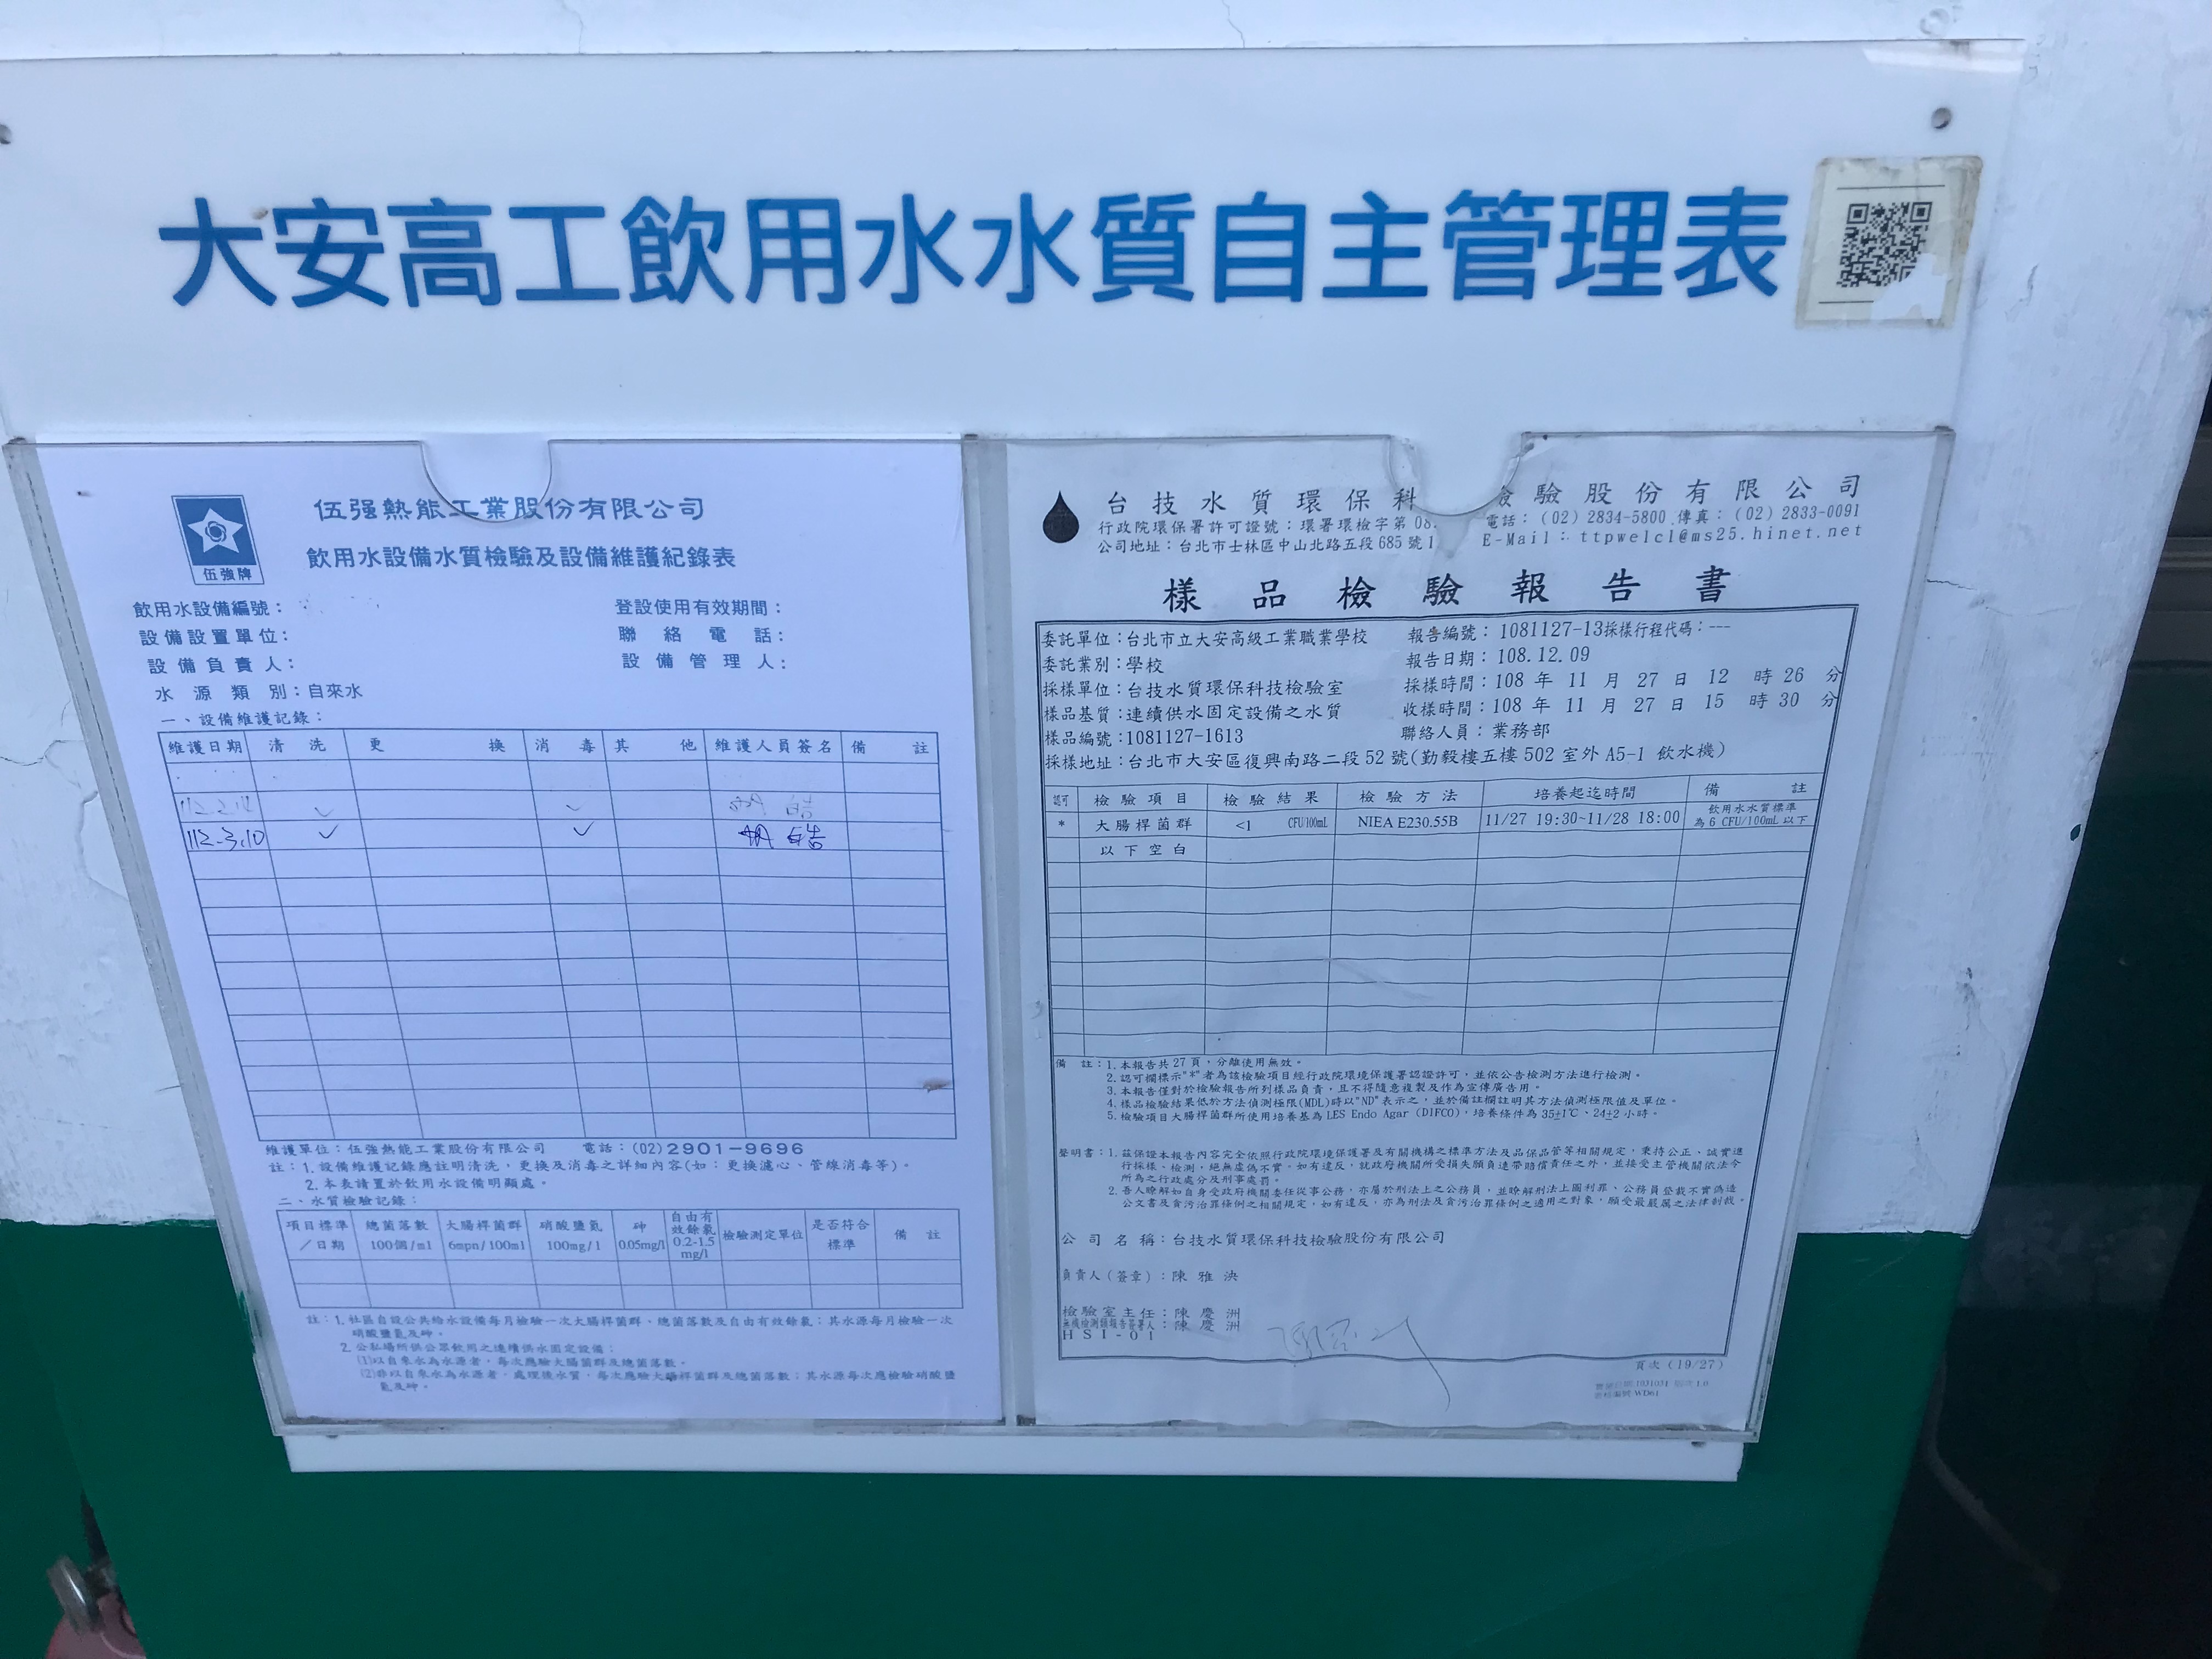 大安高工飲用水水質自主管理表
伍强熱能工業股份有限公司
飲用水設備水質檢驗及設備維護紀錄表
伍強牌
飲用水設備編號：
登設使用有效期間：
設備設置單位：
聯絡電話：
設備負責人：
設備管理人：
水源類別：自來水
一、設備維護記錄：
維護日期 清洗 更換 消毒 其他 維護人員簽名 備註
112.3.10 ✓ ✓
維護單位：伍強熱能工業股份有限公司 電話：(02)2901-9696
註：1. 設備維護記錄應註明清洗，更換及消毒之詳細內容(如：更換濾心、管線消毒等)。
2. 本表請置於飲用水設備明顯處。
二、水質檢驗記錄：
項目標準／日期 總菌落數100個/ml 大腸桿菌群6mpn/100ml 硝酸鹽氮100mg/l 砷0.05mg/l 自由有效餘氯0.2-1.5mg/l 檢驗測定單位 是否符合標準 備註
註：1. 社區自設公共給水設備每月檢驗一次大腸桿菌群、總菌落數及自由有效餘氯；其水源每月檢驗一次
硝酸鹽氮及砷。
2. 公私場所供公眾飲用之連續供水固定設備：
(1)以自來水為水源者，每次應驗大腸菌群及總菌落數。
(2)非以自來水為水源者，處理後水質，每次應驗大腸桿菌群及總菌落數；其水源每次應檢驗硝酸鹽
氮及砷。
台技水質環保科 驗股份有限公司
行政院環保署許可證號：環署環檢字第 08
電話：(02) 2834-5800 傳真：(02) 2833-0091
公司地址：台北市士林區中山北路五段 685 號 1
E-Mail：ttpwelcl@ms25.hinet.net
樣品檢驗報告書
委託單位：台北市立大安高級工業職業學校 報告編號：1081127-13採樣行程代碼：---
委託業別：學校 報告日期：108.12.09
採樣單位：台技水質環保科技檢驗室 採樣時間：108 年 11 月 27 日 12 時 26 分
樣品基質：連續供水固定設備之水質 收樣時間：108 年 11 月 27 日 15 時 30 分
樣品編號：1081127-1613 聯絡人員：業務部
採樣地址：台北市大安區復興南路二段 52 號(勤毅樓五樓 502 室外 A5-1 飲水機)
認可 檢驗項目 檢驗結果 檢驗方法 培養起迄時間 備註
* 大腸桿菌群 <1 CFU/100mL NIEA E230.55B 11/27 19:30~11/28 18:00 飲用水水質標準為 6 CFU/100mL 以下
以下空白
備註：1. 本報告共 27 頁，分離使用無效。
2. 認可欄標示"*"者為該檢驗項目經行政院環境保護署認證許可，並依公告檢測方法進行檢測。
3. 本報告僅對於檢驗報告所列樣品負責，且不得隨意複製及作為宣傳廣告用。
4. 樣品檢驗結果低於方法偵測極限(MDL)時以"ND"表示之，並於備註欄註明其方法偵測極限值及單位。
5. 檢驗項目大腸桿菌群所使用培養基為 LES Endo Agar (DIFCO)，培養條件為 35±1℃、24±2 小時。
聲明書：1. 茲保證本報告內容完全依照行政院環境保護署及有關機構之標準方法及品保品管等相關規定，秉持公正、誠實進
行採樣、檢測，絕無虛偽不實。如有違反，就政府機關所受損失願負連帶賠償責任之外，並接受主管機關依法令
所為之行政處分及刑事處罰。
2. 吾人瞭解如自身受政府機關委任從事公務，亦屬於刑法上之公務員，並瞭解刑法上圖利罪、公務員登載不實偽造
公文書及貪污治罪條例之相關規定，如有違反，亦為刑法及貪污治罪條例之適用之對象，願受最嚴厲之法律制裁。
公司名稱：台技水質環保科技檢驗股份有限公司
負責人(簽章)：陳雅泱
檢驗室主任：陳慶洲
無機檢測類報告簽署人：陳慶洲
HSI-01
頁次 (19/27)